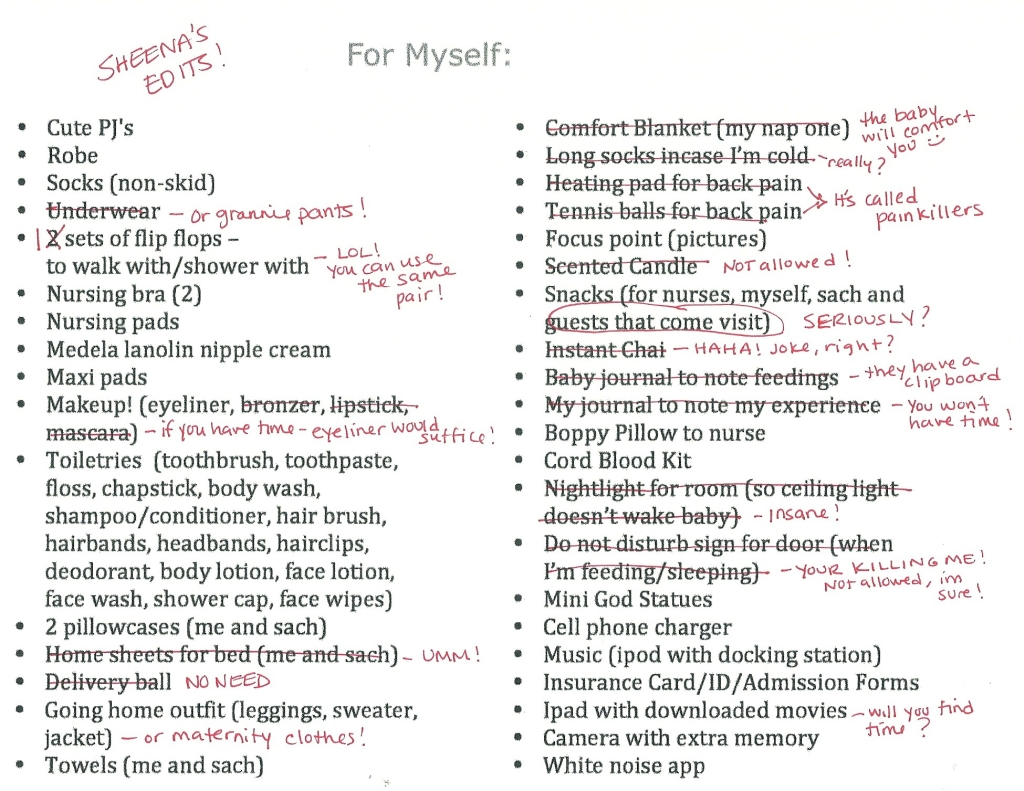 SHEENA'S
EDITS!
For Myself:
• Cute PJ's
• Robe
• Socks (non-skid)
• Underwear – or grannie pants!
• 1 2 sets of flip flops –
to walk with/shower with – LOL!
you can use
the same
pair!
• Nursing bra (2)
• Nursing pads
• Medela lanolin nipple cream
• Maxi pads
• Makeup! (eyeliner, bronzer, lipstick,
mascara) – if you have time – eyeliner would
suffice!
• Toiletries (toothbrush, toothpaste,
floss, chapstick, body wash,
shampoo/conditioner, hair brush,
hairbands, headbands, hairclips,
deodorant, body lotion, face lotion,
face wash, shower cap, face wipes)
• 2 pillowcases (me and sach)
• Home sheets for bed (me and sach) – UMM!
• Delivery ball NO NEED
• Going home outfit (leggings, sweater,
jacket) – or maternity clothes!
• Towels (me and sach)
• Comfort Blanket (my nap one) the baby
will comfort
you
• Long socks incase I'm cold – really?
• Heating pad for back pain
• Tennis balls for back pain
It's called
painkillers
• Focus point (pictures)
• Scented Candle NOT allowed!
• Snacks (for nurses, myself, sach and
guests that come visit) SERIOUSLY?
• Instant Chai – HAHA! Joke, right?
• Baby journal to note feedings – they have a
clipboard
• My journal to note my experience – You won't
have time!
• Boppy Pillow to nurse
• Cord Blood Kit
• Nightlight for room (so ceiling light
doesn't wake baby) – Insane!
• Do not disturb sign for door (when
I'm feeding/sleeping) – YOUR KILLING ME!
Not allowed, im
sure!
• Mini God Statues
• Cell phone charger
• Music (ipod with docking station)
• Insurance Card/ID/Admission Forms
• Ipad with downloaded movies – will you find
time?
• Camera with extra memory
• White noise app